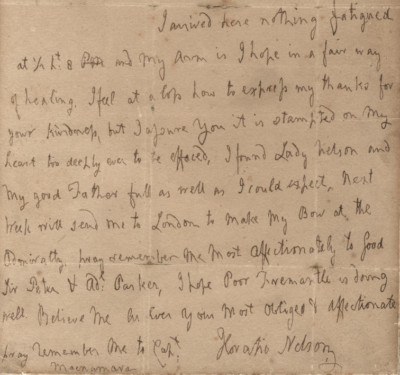 I arrived here nothing fatigued
at ½ pt. 8 and My Arm is I hope in a fair way
of healing. I feel at a loss how to express my thanks for
your kindness, but I assure You it is stampted on My
heart too deeply ever to be effaced, I found Lady Nelson and
My good Father full as well as I could expect, Next
Week will send me to London to make My Bow at the
Admiralty, pray remember Me Most Affectionately to Good
Sir Peter & Adl. Parker, I hope Poor Freemantle is doing
well Believe Me as Ever Your Most Obliged & Affectionate
Horatio Nelson
pray remember Me to Capt.
Macnamara